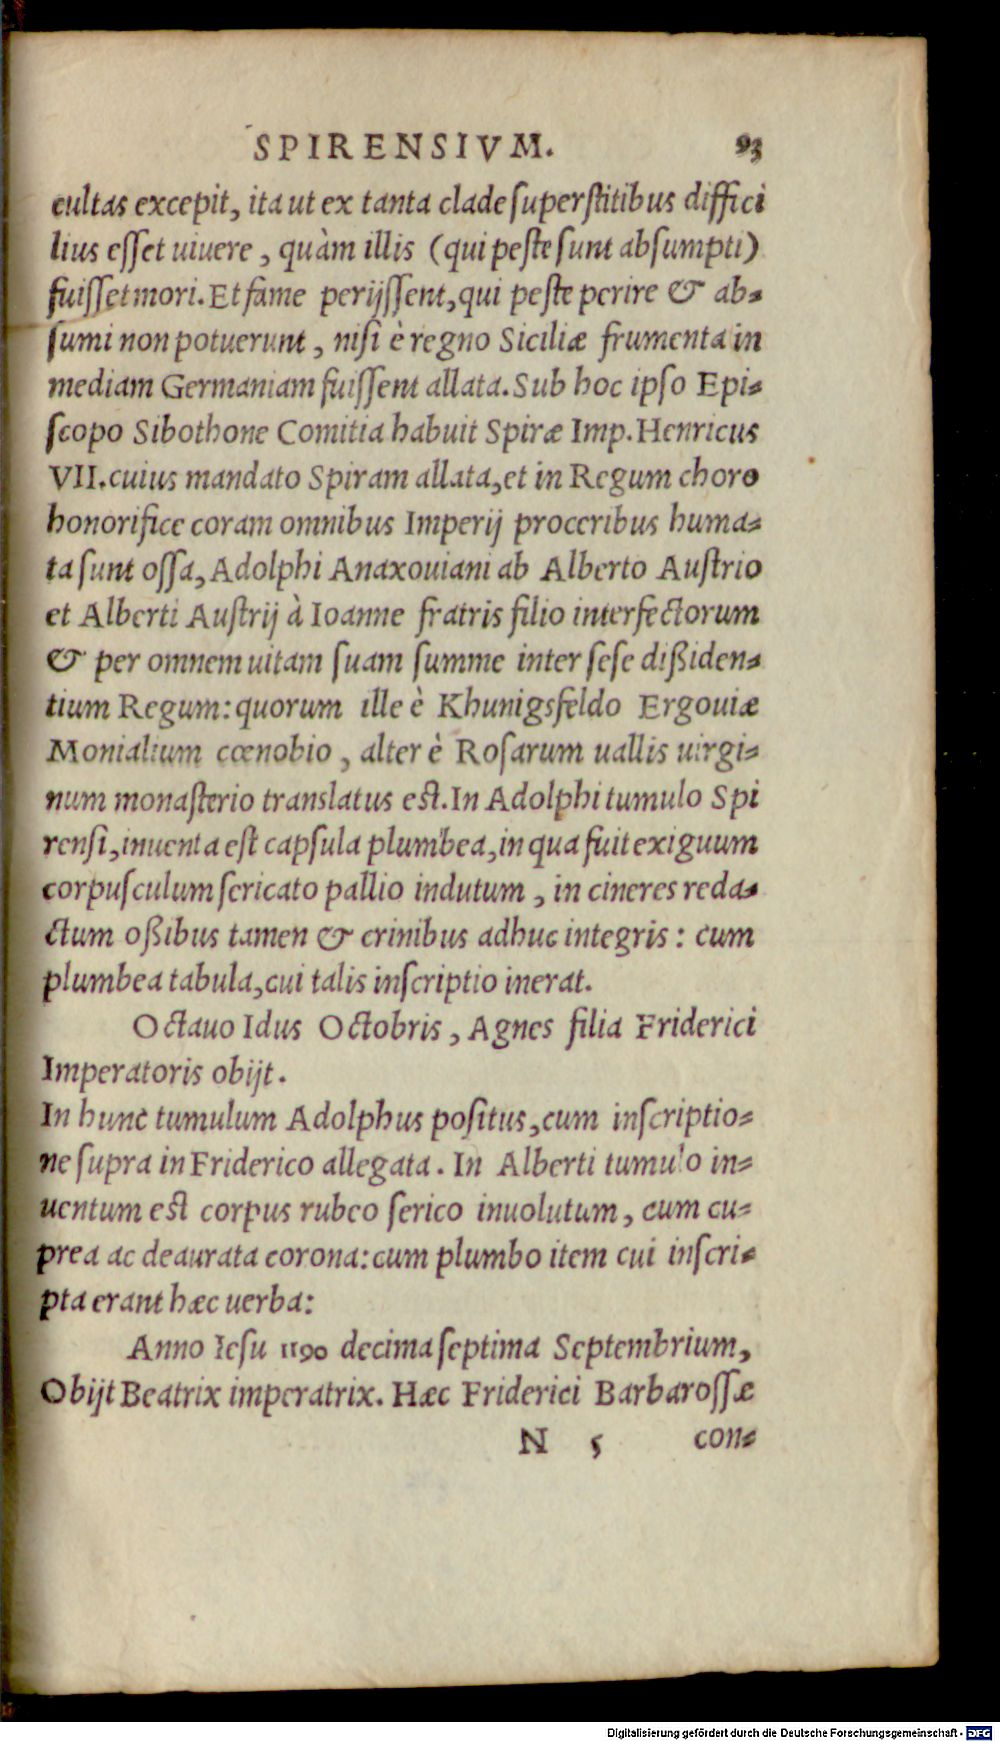 SPIRENSIVM. 93
cultas excepit, ita ut ex tanta clade superstitibus diffici
lius esset uiuere, quàm illis (qui peste sunt absumpti)
fuisset mori. Et fame perijssent, qui peste perire & ab-
sumi non potuerunt, nisi è regno Siciliæ frumenta in
mediam Germaniam fuissent allata. Sub hoc ipso Epi-
scopo Sibothone Comitia habuit Spiræ Imp. Henricus
VII. cuius mandato Spiram allata, et in Regum choro
honorifice coram omnibus Imperij proceribus huma-
ta sunt ossa, Adolphi Anaxouiani ab Alberto Austrio
et Alberti Austrij à Ioanne fratris filio interfectorum
& per omnem uitam suam summe inter sese dißiden-
tium Regum: quorum ille è Khunigsfeldo Ergouiæ
Monialium cœnobio, alter è Rosarum uallis uirgi-
num monasterio translatus est. In Adolphi tumulo Spi
rensi, inuenta est capsula plumbea, in qua fuit exiguum
corpusculum sericato pallio indutum, in cineres reda-
ctum oßibus tamen & crinibus adhuc integris: cum
plumbea tabula, cui talis inscriptio inerat.
Octauo Idus Octobris, Agnes filia Friderici
Imperatoris obijt.
In hunc tumulum Adolphus positus, cum inscriptio-
ne supra in Friderico allegata. In Alberti tumulo in-
uentum est corpus rubeo serico inuolutum, cum cu-
prea ac deaurata corona: cum plumbo item cui inscri-
pta erant hæc uerba:
Anno Iesu 1190 decima septima Septembrium,
Obijt Beatrix imperatrix. Hæc Friderici Barbarossæ
N 5 con-
Digitalisierung gefördert durch die Deutsche Forschungsgemeinschaft - DFG